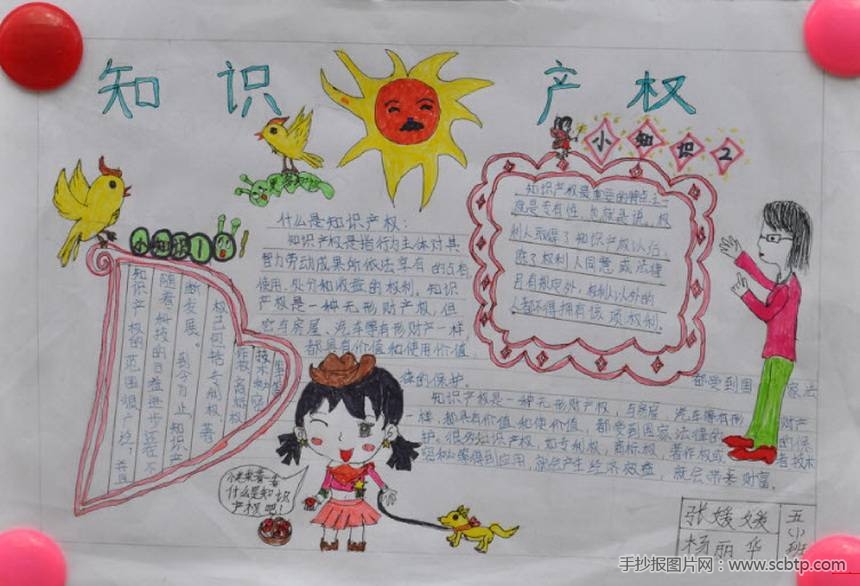 知 识 产 权
小知识2
小知识1
什么是知识产权:
知识产权是指行为主体对其
智力劳动成果所依法享有的占有
使用、处分和收益的权利。知识
产权是一种无形财产权,但
它与房屋、汽车等有形财产一样,
都具有价值和使用价值,
都受到国家法
律的保护。
知识产权是重要的特点之一
就是专有性 也就是说,权
利人取得了知识产权以后,
除了权利人同意或法律
另有规定外,权利人以外的
人都不得拥有该项权利.
知识产权的范围很广泛,并且
随着科技的日益进步还在不
断发展。到今为止知识产
权已包括专利权、著
作权、商标权
技术秘密
知识产权是一种无形财产权,与房屋,汽车等有形财产
一样,都具有价值和使价值,都受到国家法律的保
护。很多知识产权,如专利权,商标权,著作权或者技术
得到应用,就会产生经济效益,就会带来财富。
小来来看看
什么是知识
产权吧!
张媛媛 五
杨丽华 (1)
班
手抄报图片网:www.scbtp.com